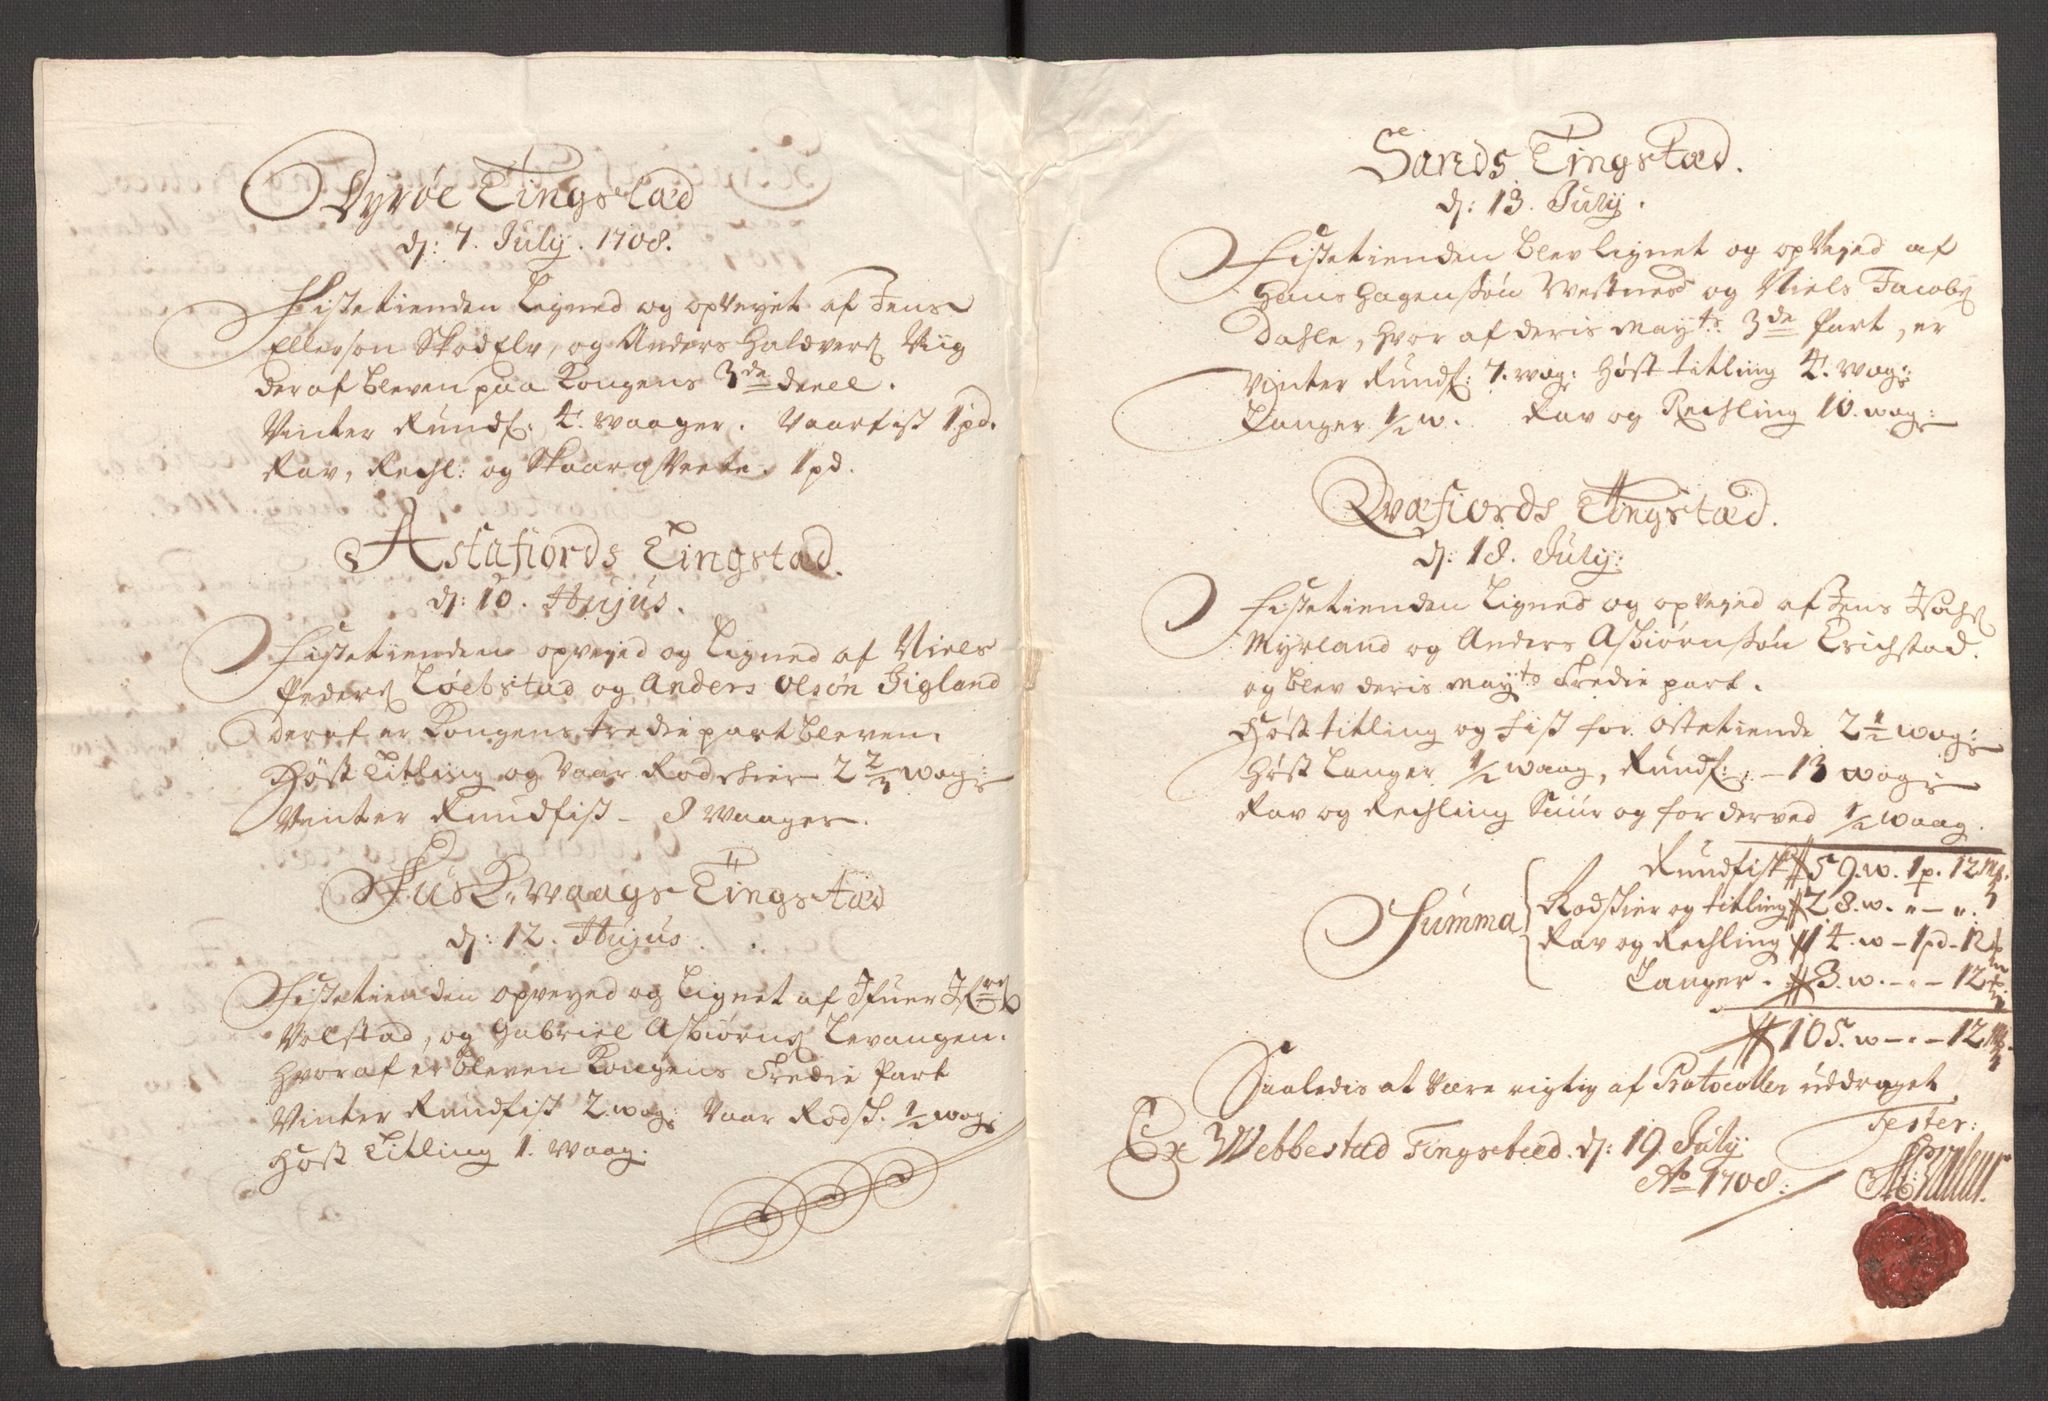 Dyrøe Tingstæd
d: 7. July. 1708.
Fisketienden Ligned og opveyet af Jens
Ellerson Skodelv, og Anders Haldvers Viig
deraf bleven paa Kongens 3de deell.
Vinter Rundf: 4. Waager. Vaarfisk 1 pd.
Rav, Rechl: og Skaarqveite. 1 pd.
Astafiords Tingstæd.
d: 10. Hujus.
Fisketienden opveyed og Ligned af Niels
Peders Løebstad og Anders Olsøn
deraf er Kongens tredie part bleven.
Høst Titling og Vaar Rodskier 2 2/3 wog:
Vinter Rundfisk - 8 Waager.
Fusk-waags Tingstæd
d: 12. Hujus.
Fisketienden opveyed og Lignet af Ifuer
Volstad, og Gabriel Asbiørns Levangen.
Hvoraf er bleven Kongens Tredie Part
Vinter Rundfisk 2. wog: Vaar Rodsk. 1/2 wog:
Høst Titling 1. Waag.
Sands Tingstæd.
d: 13. July.
Fisketienden blev lignet og opveyed af
Hans Hagenssøn Westnes og Niels Jacobs
Dahle, hvor af deris Mayts 3de Part, er
Vinter Rundf: 7. wog: Høst titling 4. wog:
Langer 1/2 w. Rav og Rechling 10. wog:
Qvæfiords Tingstæd.
d: 18. July:
Fisketienden Ligned og opveyed af Jens Isachs
Myrland og Anders Asbiørnssøn Erichstad.
og blev deris Mayts Tredie part.
Høst titling og Fisk for Ostetiende 2 1/2 wog:
Høst Langer 1/2 waag, Rundf: - 13 wog:
Rav og Rechling Suur og forderved 1/2 Waag.
Rundfisk 59. w. 1 p. 12 mk.
Summa Rodskier og titling 28. w. „ - „.
Rav og Rechling 14. w - 1 pd - 12
Langer. 3. w. - „ - 12
105. w - „ - 12 mk.
Saaledis at være rigtig af Protocollen uddraget
Tester:
Ex Webbestad Tingsted. d: 19. July
Ao 1708.